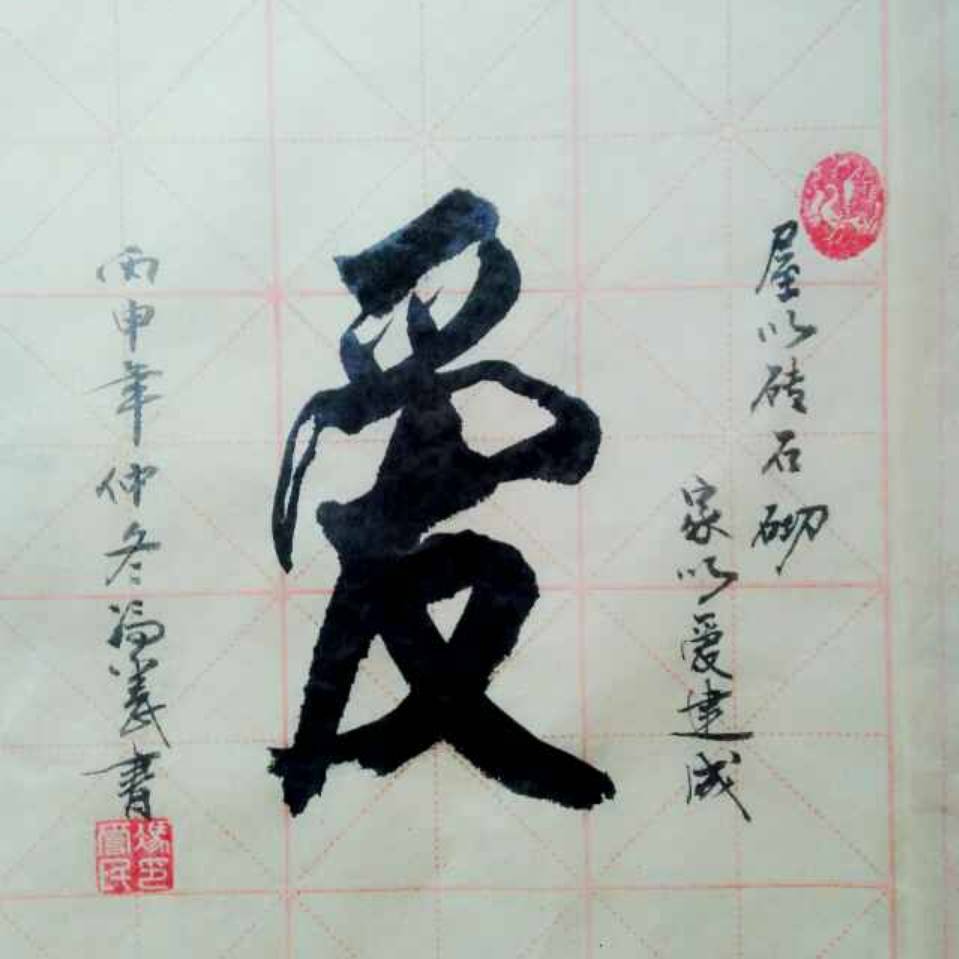 屋以砖石砌
家以爱建成
愛
丙申年仲冬冯义書